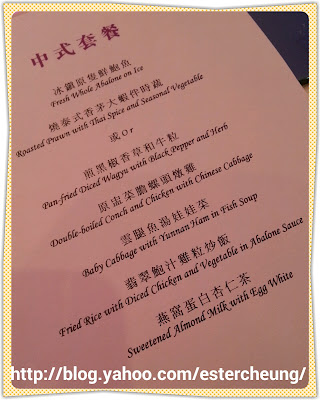 中式套餐
冰鎮原隻鮮鮑魚
Fresh Whole Abalone on Ice
燒泰式香茅大蝦伴時蔬
Roasted Prawn with Thai Spice and Seasonal Vegetable
或 Or
煎黑椒香草和牛粒
Pan-fried Diced Wagyu with Black Pepper and Herb
原盅菜膽螺頭燉雞
Double-boiled Conch and Chicken with Chinese Cabbage
雲腿魚湯娃娃菜
Baby Cabbage with Yunnan Ham in Fish Soup
翡翠鮑汁雞粒炒飯
Fried Rice with Diced Chicken and Vegetable in Abalone Sauce
燕窩蛋白杏仁茶
Sweetened Almond Milk with Egg White
http://blog.yahoo.com/estercheung/